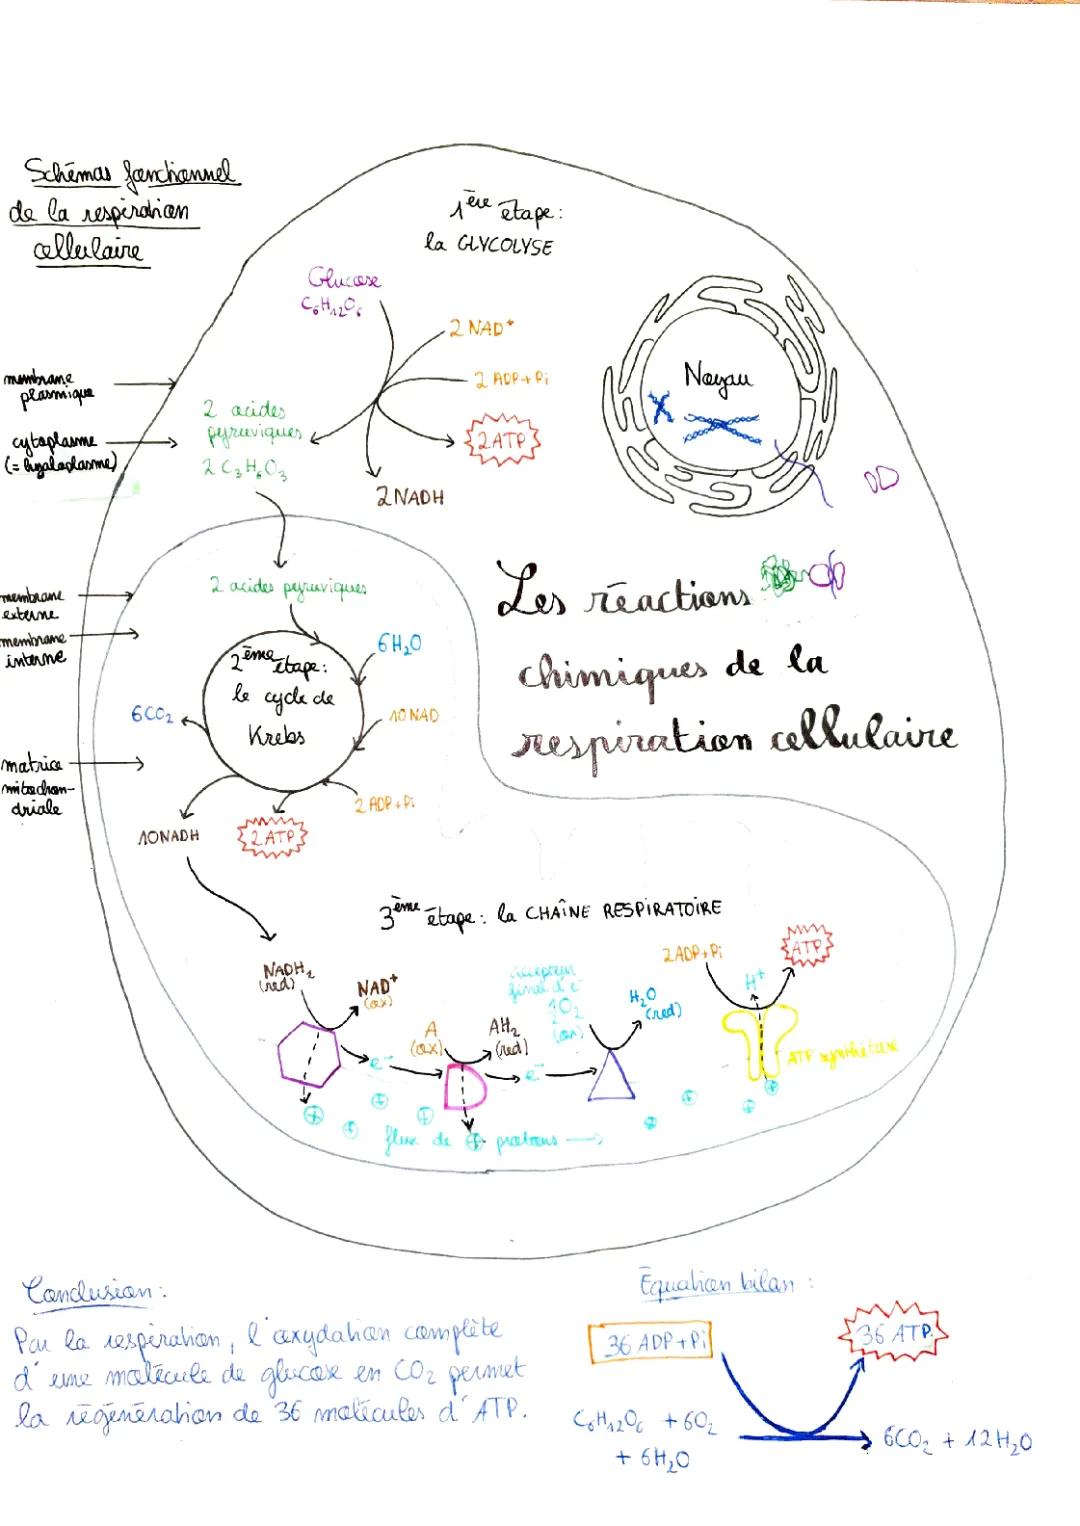 Schémas fonctionnel
de la respiration
cellulaire
1ère étape:
la GLYCOLYSE
Glucose
C₆H₁₂O₆
2 NAD⁺
2 ADP+Pi
2ATP
2NADH
2 acides
pyruviques
2 C₃H₆O₃
membrane
plasmique
cytoplasme
(= hyaloplasme)
Noyau
membrane
externe
membrane
interne
matrice
mitochon-
driale
2 acides pyruviques
2ème étape:
le cycle de
Krebs
6H₂O
10 NAD
2 ADP+Pi
6CO₂
10NADH
2ATP
Les réactions
chimiques de la
respiration cellulaire
3ème étape: la CHAÎNE RESPIRATOIRE
NADH₂
(red)
NAD⁺
(ox)
e⁻
A
(ox)
AH₂
(red)
e⁻
accepteur
final d'e⁻
½O₂
(ox)
H₂O
(red)
2ADP+Pi
ATP
H⁺
ATP synthétase
flux de + protons
Conclusion:
Par la respiration, l'oxydation complète
d'une molécule de glucose en CO₂ permet
la régénération de 36 molécules d'ATP.
Équation bilan :
36 ADP+Pi
36 ATP
C₆H₁₂O₆ + 6O₂
+ 6H₂O
6CO₂ + 12H₂O